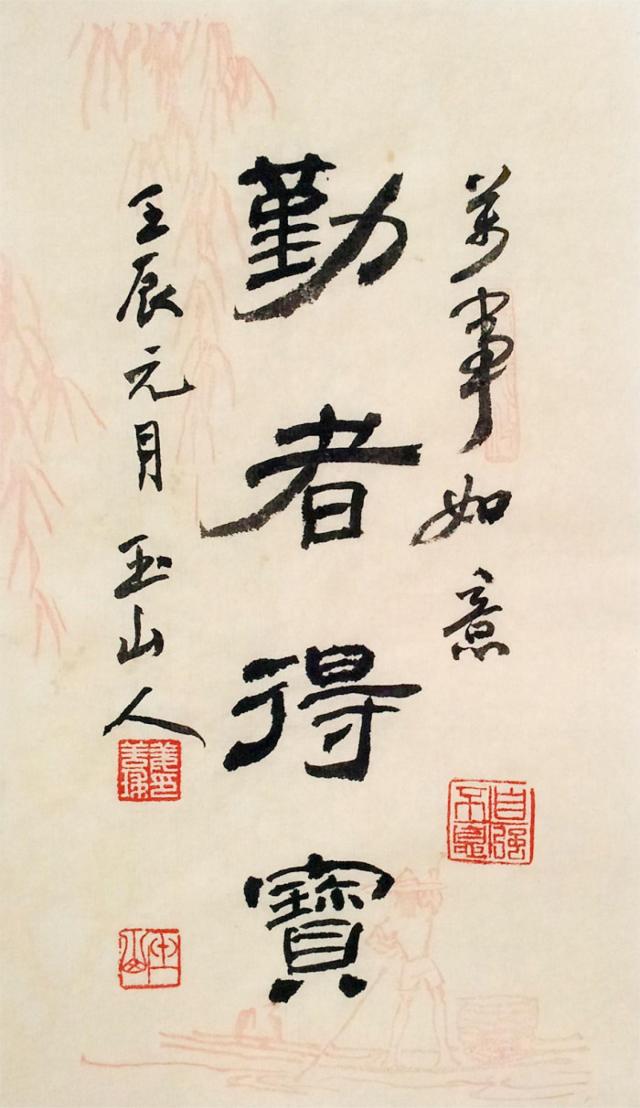 萬事如意
自强不息
勤者得寶
壬辰元月 玉山人